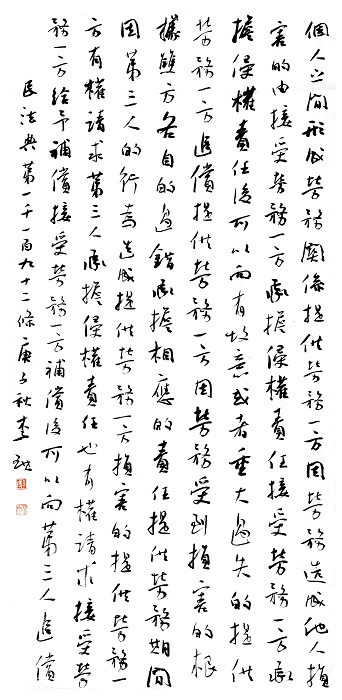 個人之間形成勞務關係提供勞務一方因勞務造成他人損
害的由接受勞務一方承擔侵權責任接受勞務一方承
擔侵權責任後可以向有故意或者重大過失的提供
勞務一方追償提供勞務一方因勞務受到損害的根
據雙方各自的過錯承擔相應的責任提供勞務期間
因第三人的行為造成提供勞務一方損害的提供勞務一
方有權請求第三人承擔侵權責任也有權請求接受勞
務一方給予補償接受勞務一方補償後可以向第三人追償
民法典第一千一百九十二條庚子秋李